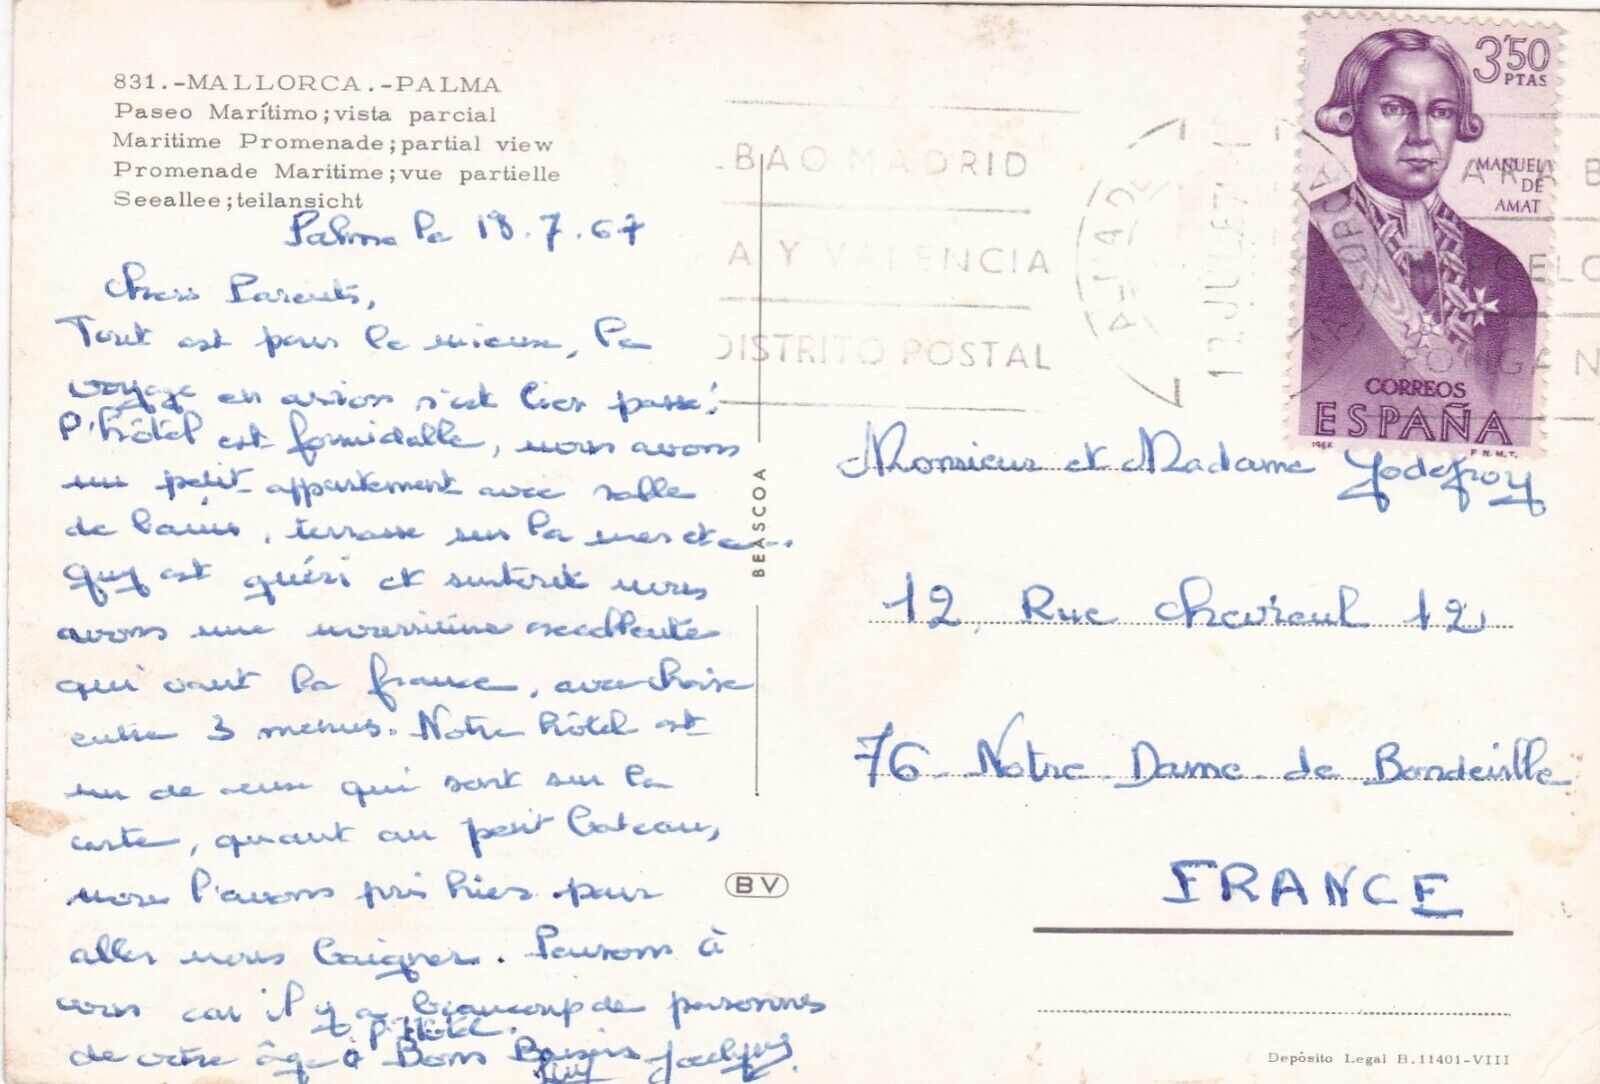 831.-MALLORCA.-PALMA
Paseo Marítimo; vista parcial
Maritime Promenade; partial view
Promenade Maritime; vue partielle
Seeallee; teilansicht
Palma le 18.7.67
Chers Parents,
Tout est pour le mieux, le
voyage en avion s'est bien passé,
l'hôtel est formidable, nous avons
un petit appartement avec salle
de bains, terrasse sur la mer etc...
Guy est guéri et surtout nous
avons une nourriture excellente
qui vaut la france, avec choix
entre 3 menus. Notre hôtel est
un de ceux qui sont sur la
carte, quant au petit bateau,
nous l'avons pris hier pour
aller nous baigner. Pensons à
vous car il y a beaucoup de personnes
de votre âge à l'hôtel. Bons Baisers Jocelyne
Guy
BEASCOA
BV
BAO MADRID
A Y VALENCIA
DISTRITO POSTAL
JUL 67
3'50
PTAS
MANUEL
DE
AMAT
CORREOS
ESPAÑA
1966
F.N.M.T.
ARA B
RCELO
PONGA N
Monsieur et Madame Godefroy
12, Rue Chevreul 12
76 Notre Dame de Bondeville
FRANCE
Depósito Legal B. 11401-VIII